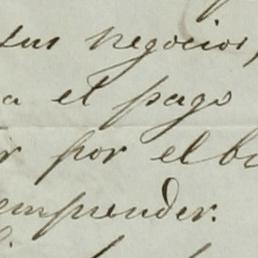 sus negocios,
a el pago
r por el bu
emprender.